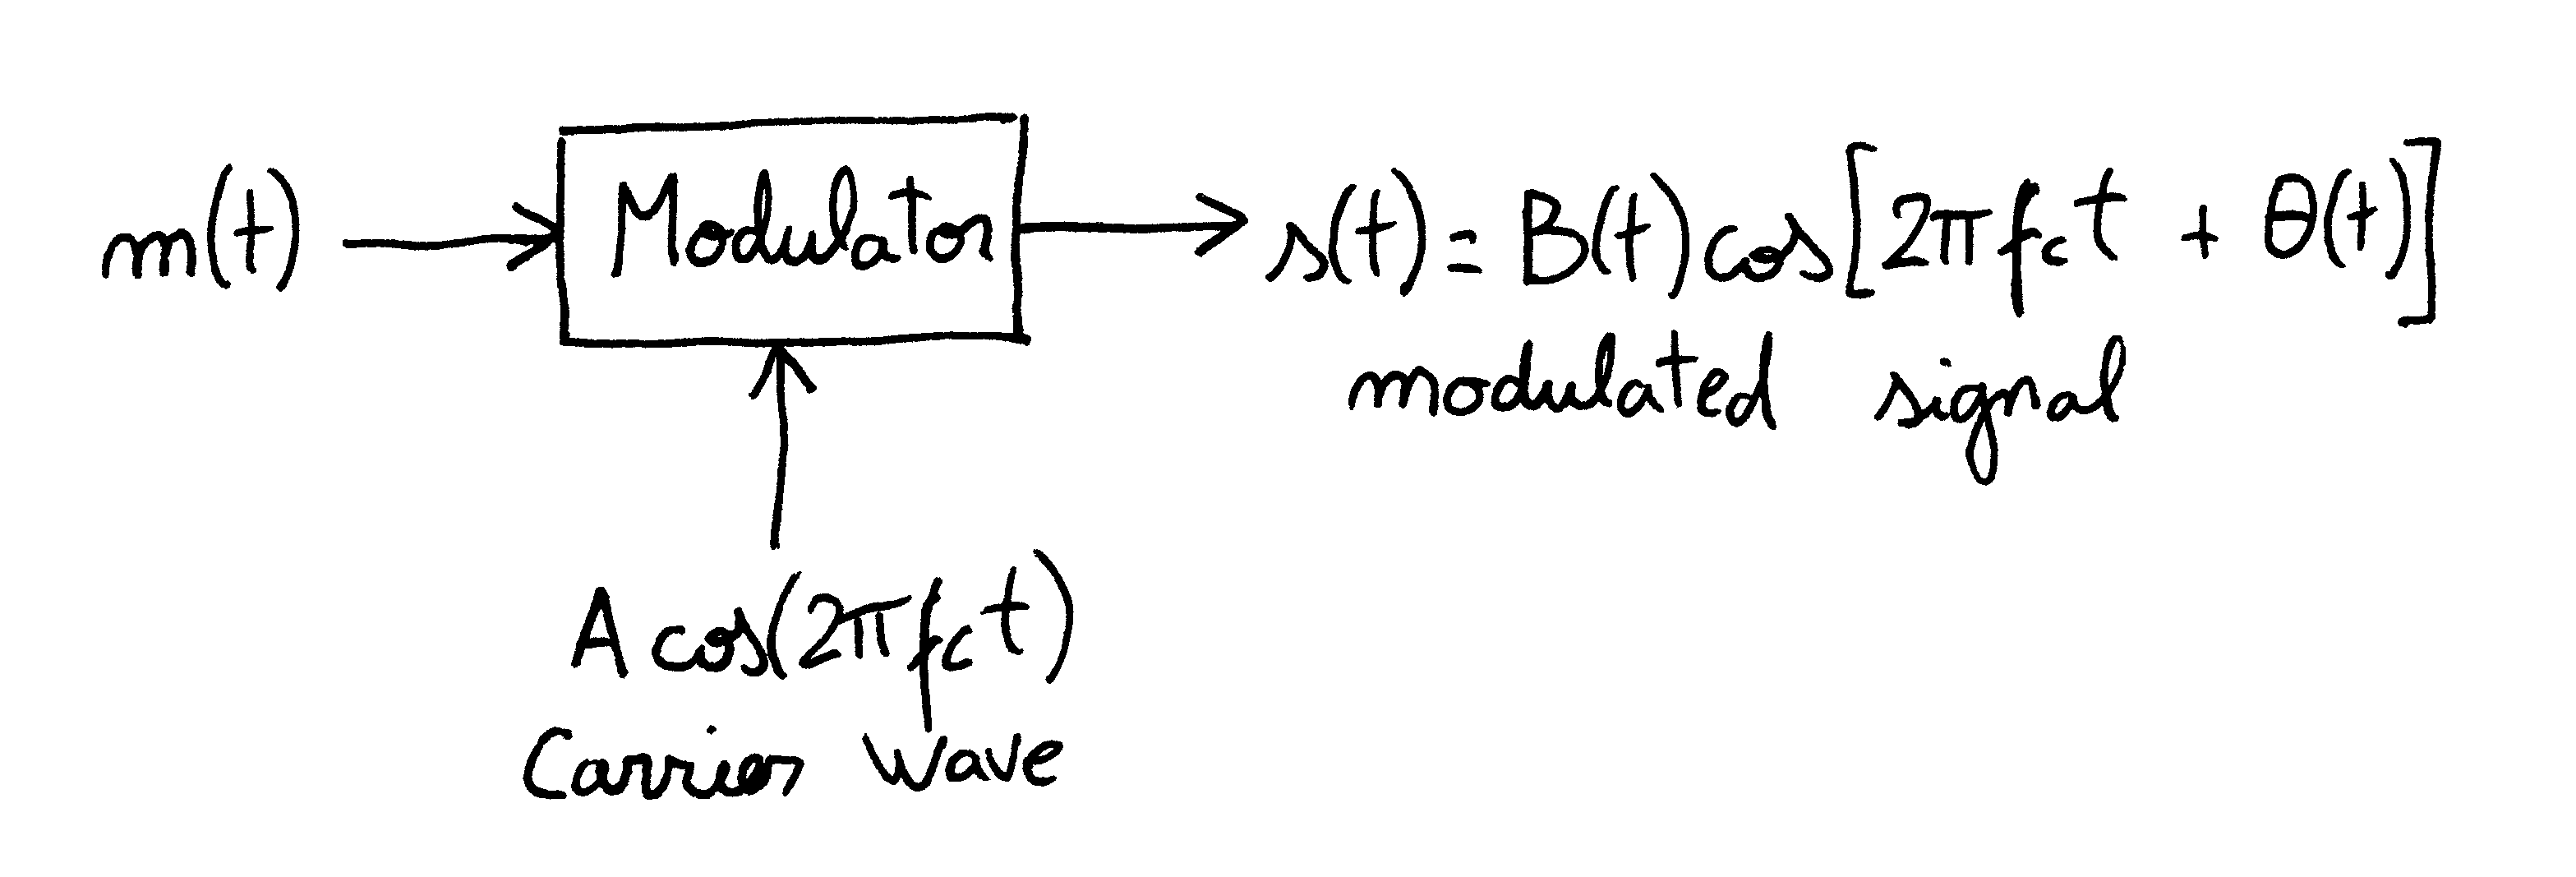 m(t)
Modulator
s(t) = B(t) cos[2πf_c t + θ(t)]
modulated signal
A cos(2πf_c t)
Carrier Wave